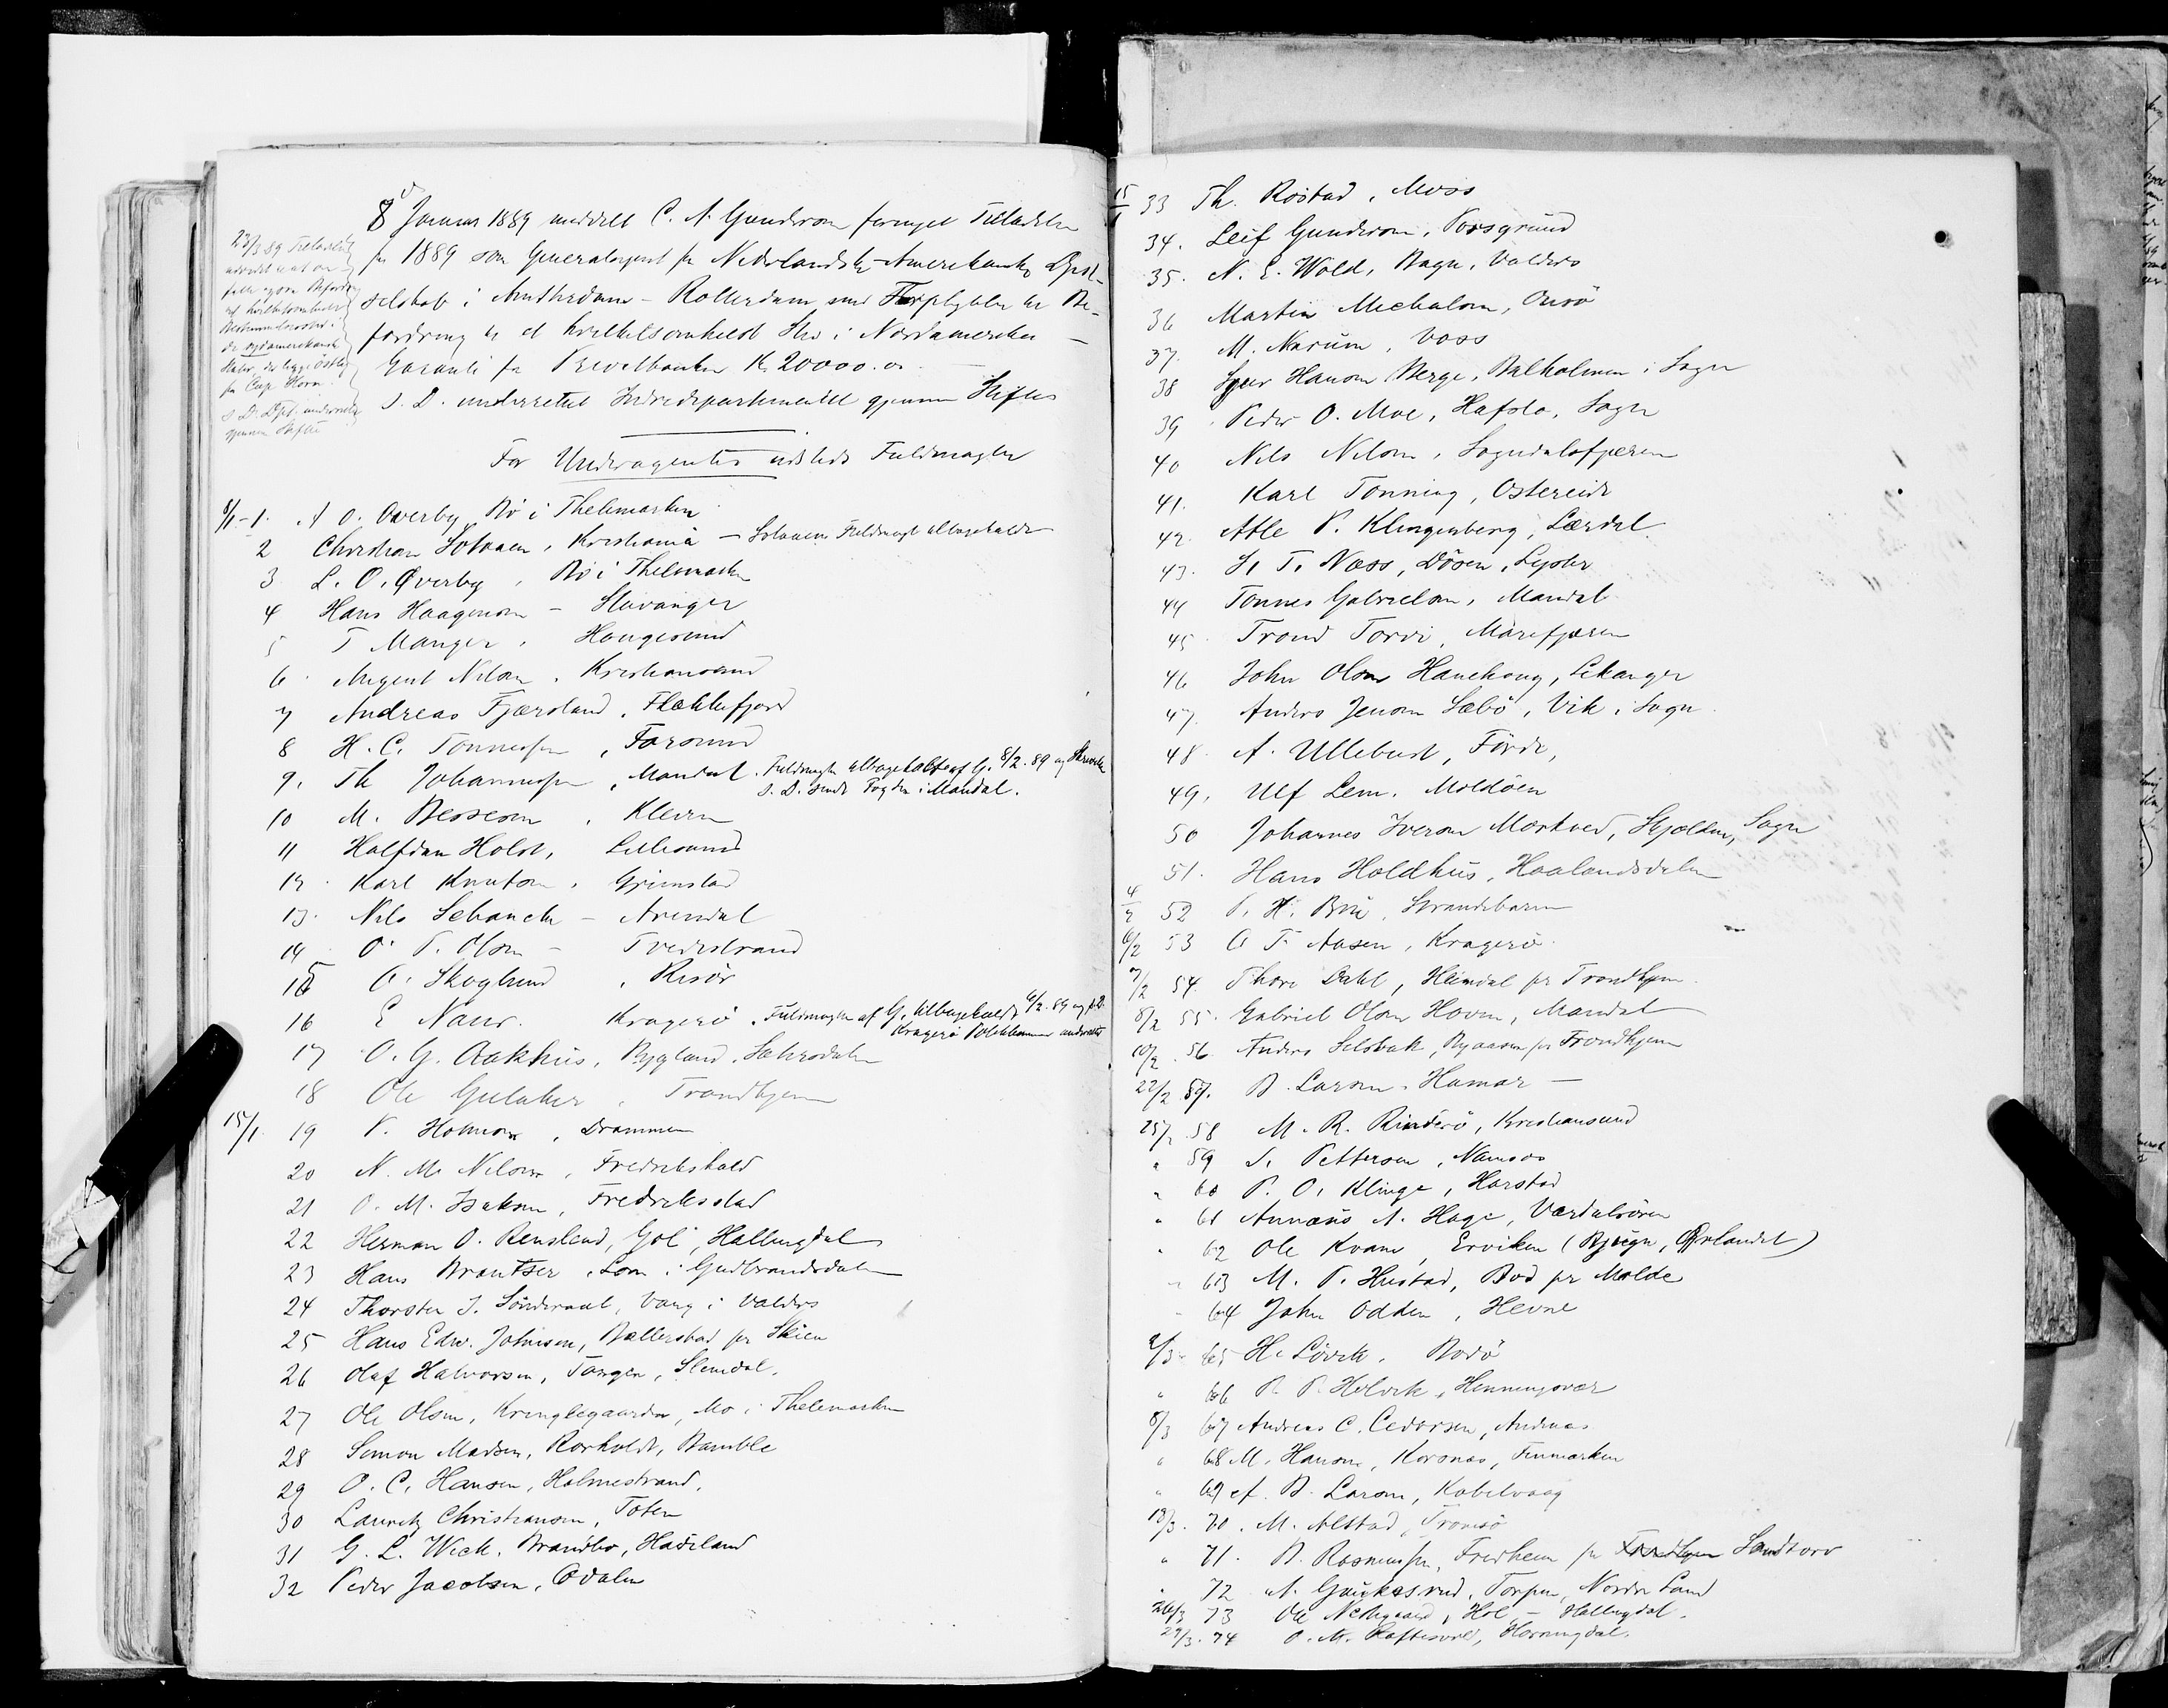 8 Januar 1889 meddelt C. A. Gundersen fornyet Tilladelse
for 1889 som Generalagent for Nederlandsk-Amerikanske Dpsk.
selskab i Amsterdam - Rotterdam med Forpligtelse til Be-
fordring til et hvilketsomhelst Sted i Nordamerika -
Garanti fra Privatbanken Kr. 20000.00
S. D. underrettet Indredepartementet gjennem Stiftet
23/3 89 Tilladelse
udvidet til at
de sydamerikanske
Stater, der ligge østlig
for Cap Horn.
S. D. Dpt. underrettet
gjennem Stiftet
For Underagenter udstedt Fuldmagter
8/1 - 1. A O. Øverby Bø i Thelemarken
2 Christian Solvaen, Kristiania - Solvaens Fuldmagt tilbagekaldt
3 L. O. Øverby, Bø i Thelemarken
4 Hans Haagensen - Stavanger
5 T Manger, Haugesund
6 August Nilsen, Kristiansand
7 Andreas Fjærsland, Flekkefjord
8 H. C. Tønnessen, Farsund
9. Th Johannessen, Mandal. Fuldmagten tilbagekaldt af G. 8/2. 89 og Skrivelse
S. D. sendt Fogden i Mandal.
10 M. Bessesen, Kleven
11 Halfdan Holst, Lillesand
12 Karl Knutsen, Grimstad
13. Nils Sebanck - Arendal
14 O. T. Olsen - Tvedestrand
15 O. Skoglund, Risør
16 E Naur. Kragerø. Fuldmagten af G. tilbagekaldt 6/2. 89 og S.D.
Kragerø Politikammer underrettet
17 O. G. Aakhus, Bygland, Sætersdalen
18 Ole Gulaker, Trondhjem
15/1. 19 P. Holmsen, Drammen
20 N. M. Nilsen, Fredrikshald
21 O. M. Isaksen, Fredriksstad
22 Herman O. Rensland, Gol, Hallingdal
23 Hans Brøutser, Lom i Gudbrandsdalen
24 Thorsten J. Sønderaal, Vang i Valders
25 Hans Edw. Johnsen, Ballerstad pr Skien
26 Olaf Halvorsen, Tangen, Slemdal.
27 Ole Olsen, Kringlegaarden, Mo i Thelemarken
28 Simon Madsen, Rørholdt, Bamble
29 O. C. Hansen, Holmestrand.
30 Lauritz Christiansen, Toten
31 G. L. Wick, Brandbo, Hadeland
32 Peder Jacobsen, Odalen
15/1 33 Th. Røstad, Moss
34. Leif Gundersen, Porsgrund
35. N. E. Wold, Bagn, Valders
36 Martin Michalsen, Onsø
37. M. Nærum, Voss
38 Sjur Hansen Berge, Balholmen i Sogn
39 Peder O. Moe, Hafslo, Sogn
40 Nils Nilsen, Sogndalsfjæren
41. Karl Tønning, Ostereide
42. Atle P. Klingenberg, Lærdal
43. S. T. Næss, Døsen, Lyster
44 Tønnes Gabrielsen, Mandal
45. Trond Torvi, Marefjæren
46 John Olsen Hanehaug, Lekanger
47. Anders Jensen Sæbø, Vik i Sogn
48. A. Ullebust, Førde,
49. Ulf Lem. Moldøen
50 Johannes Iversen Mørkved, Skjolden, Sogn
51. Hans Holdhus, Haalandsdalen
4/2 52 P. H. Bru, Strandebarm
6/2 53 O T. Aasen, Kragerø.
7/2 54. Thore Dahl, Heimdal pr Trondhjem.
8/2 55. Gabriel Olsen Hoven, Mandal
10/2. 56. Anders Selsbak, Byaasen pr Trondhjem
22/2 57. B. Larsen, Hamar -
25/2 58 M. R. Rinderø, Kristiansund
" 59 S. Pettersen, Namsos
" 60 P. O. Klinge, Harstad
" 61 Annæus A. Hage, Værdalsøren
" 62 Ole Kvam, Erviken (Bjugn, Ørlandet)
" 63 M. P. Hustad, Bud pr Molde
" 64 John Odden, Hevne
2/3 65 H. Løvik, Bodø
" 66 P. P. Helvik, Henningsvær
8/3 67 Andreas C. Cedersen, Andenæs
" 68 M. Hansen, Korsnæs, Finmarken
" 69 A. B. Larsen, Kabelvaag
18/3. 70. M. Alstad, Tromsø
" 71. B. Rasmussen, Fredheim pr Trondhjem Sandtorv
" 72 A. Gaukesrud, Torpen, Nordre Land
26/3 73 Ole Nedregaard, Hol, - Hallingdal.
29/3. 74 O. M. Raftevold, Hornindal.